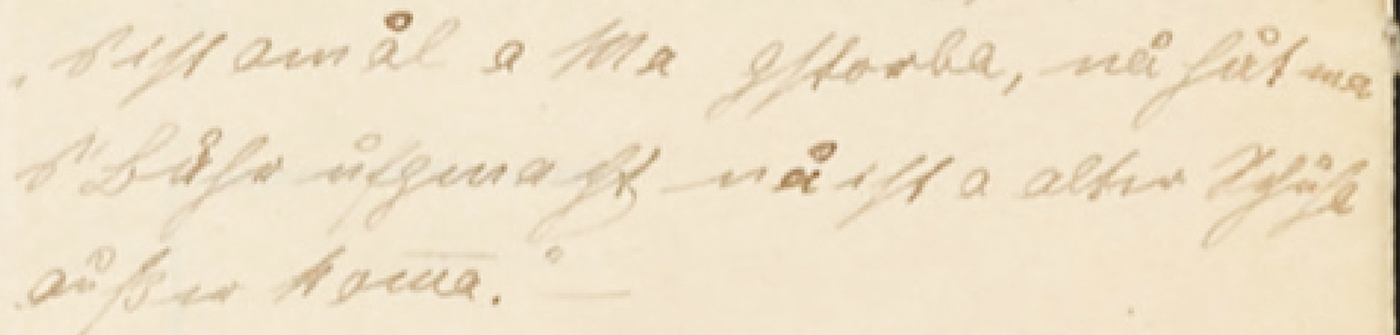 „S'ischt amål a Ma gstorba, nå håt ma
d'Båhr ufgmacht nå ischt a alter Schuh
außer koma.“ —